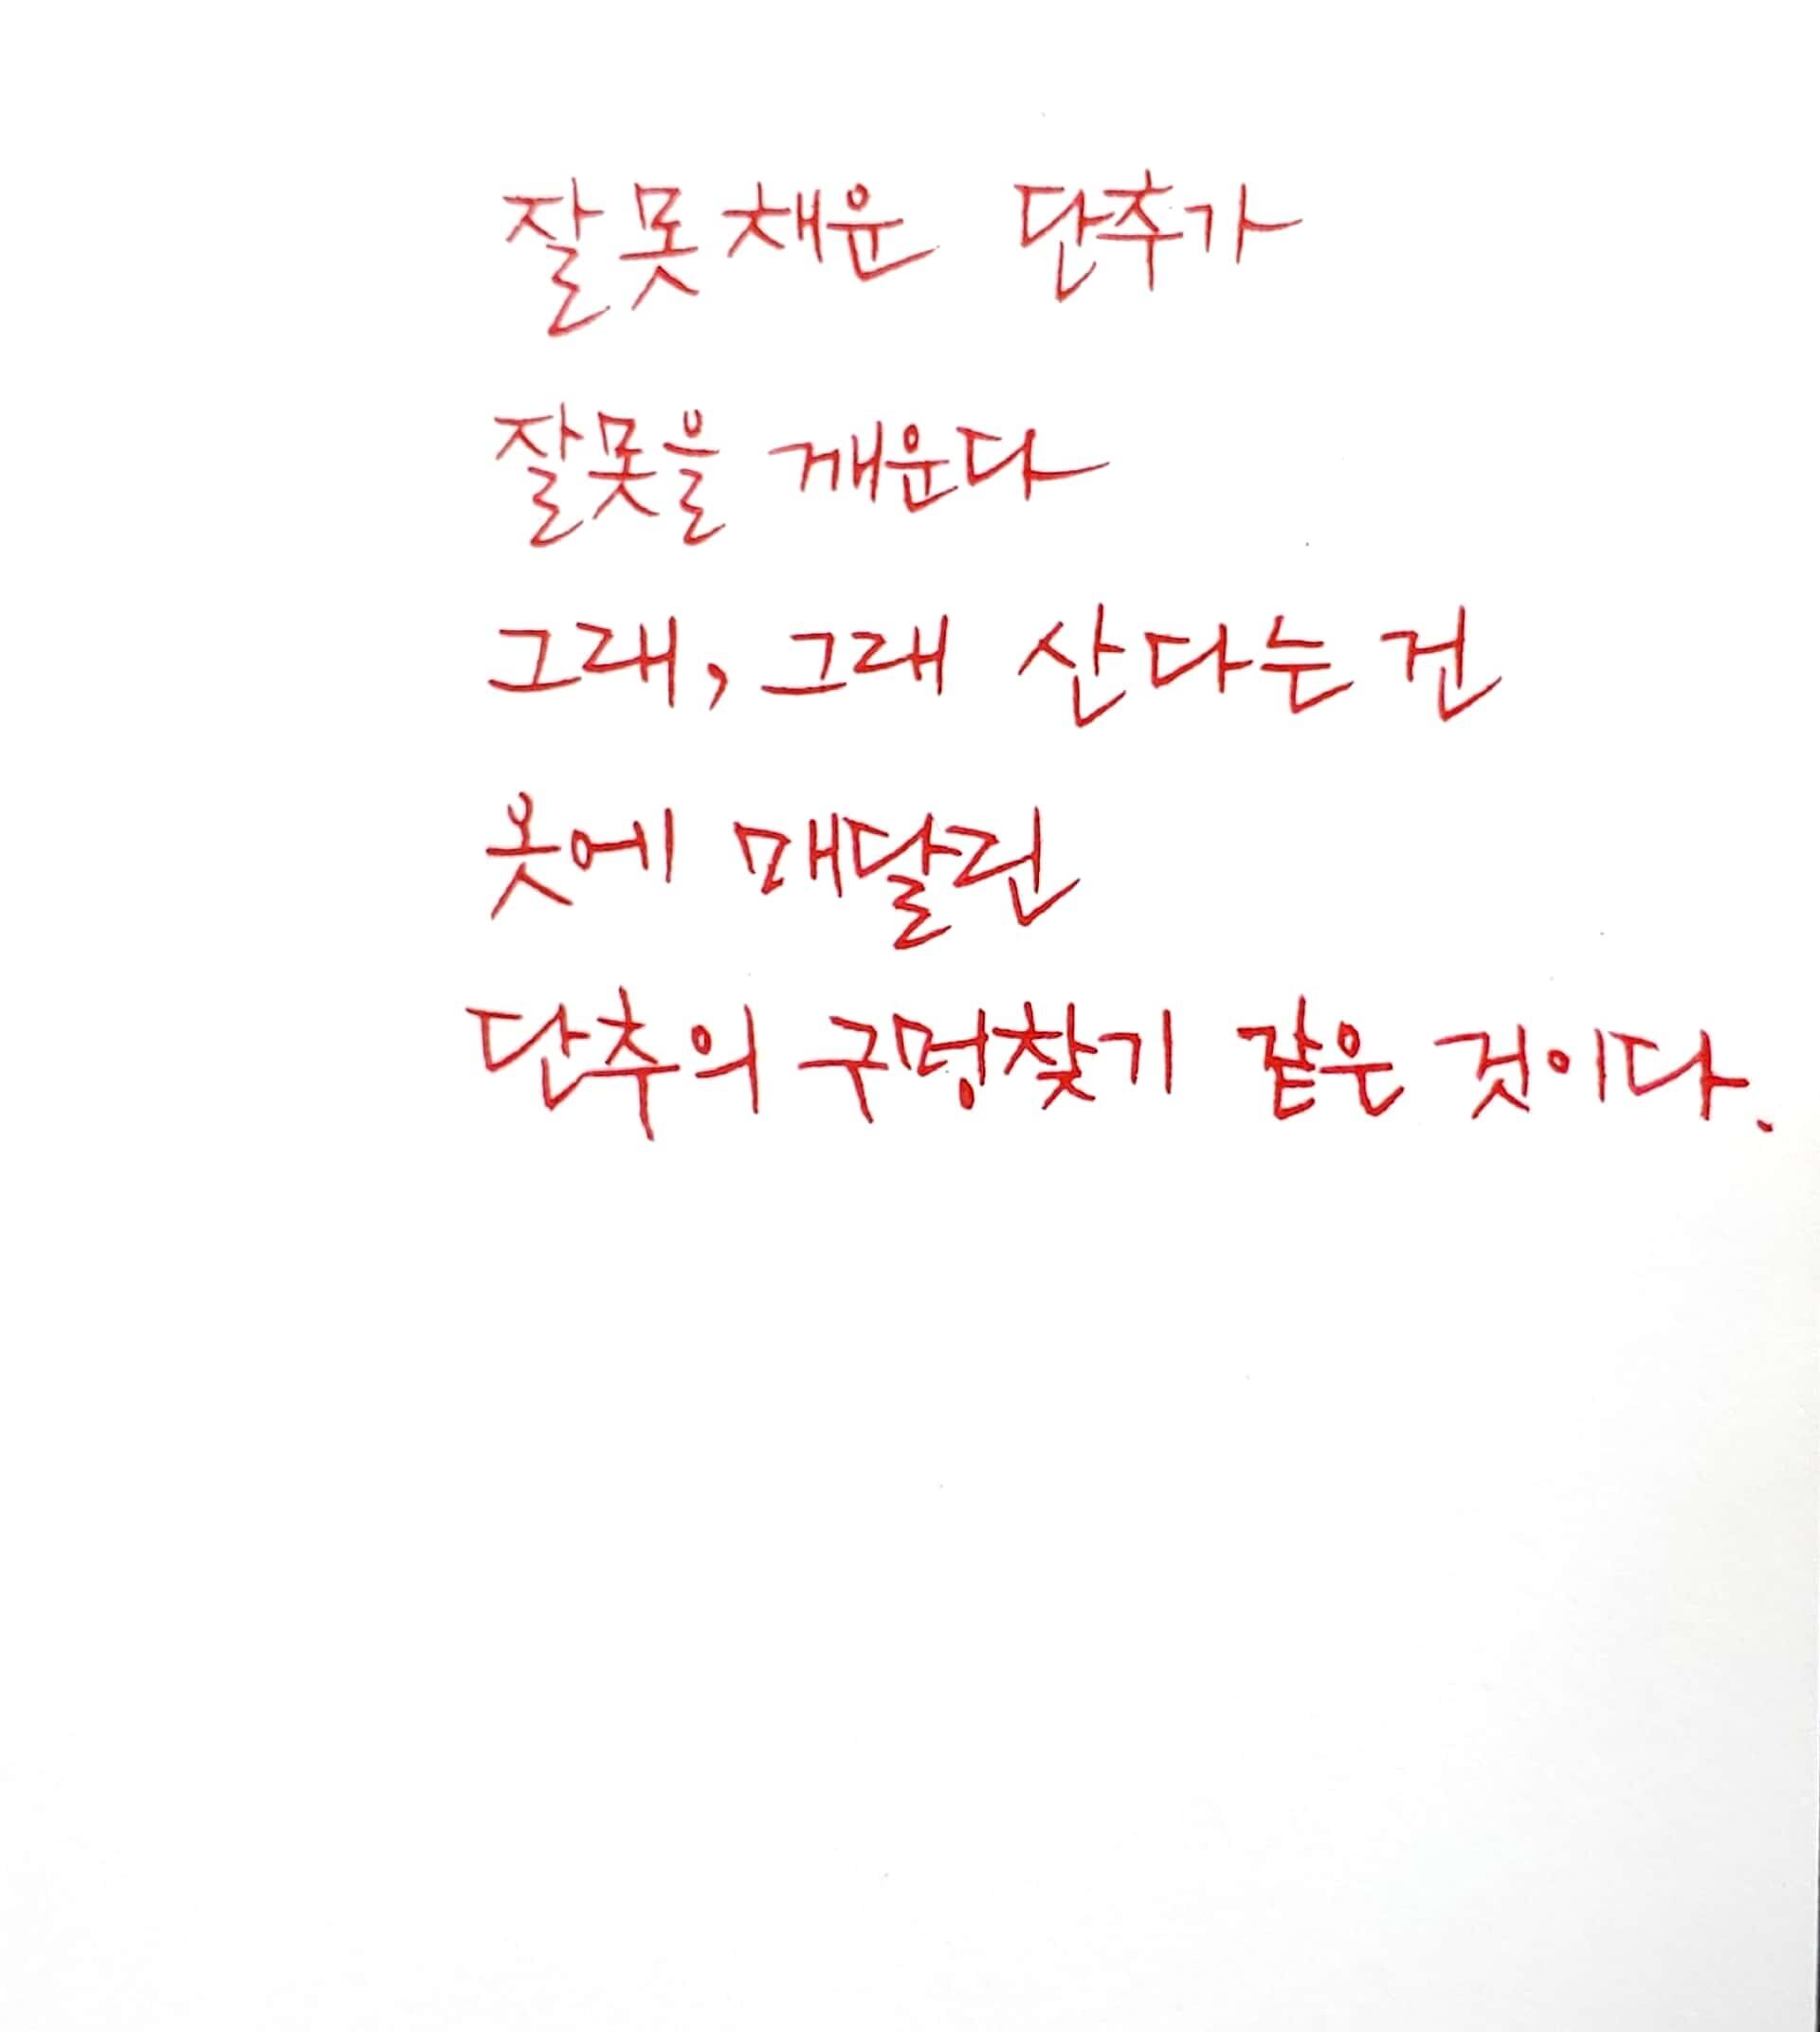 잘못 채운 단추가
잘못을 깨운다
그래, 그래 산다는 건
옷에 매달린
단추의 구멍찾기 같은 것이다.